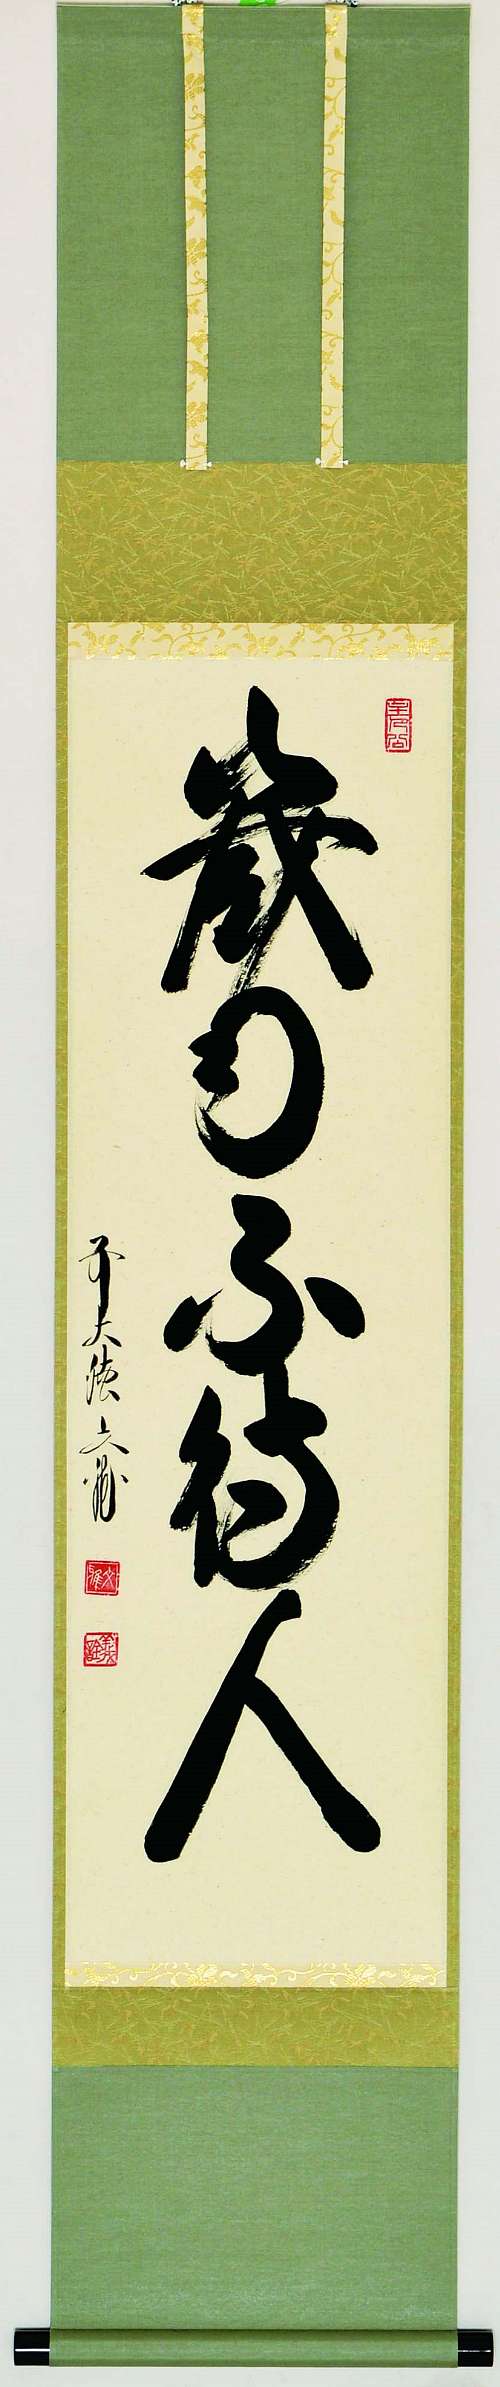 歳月不待人
前大徳文雅